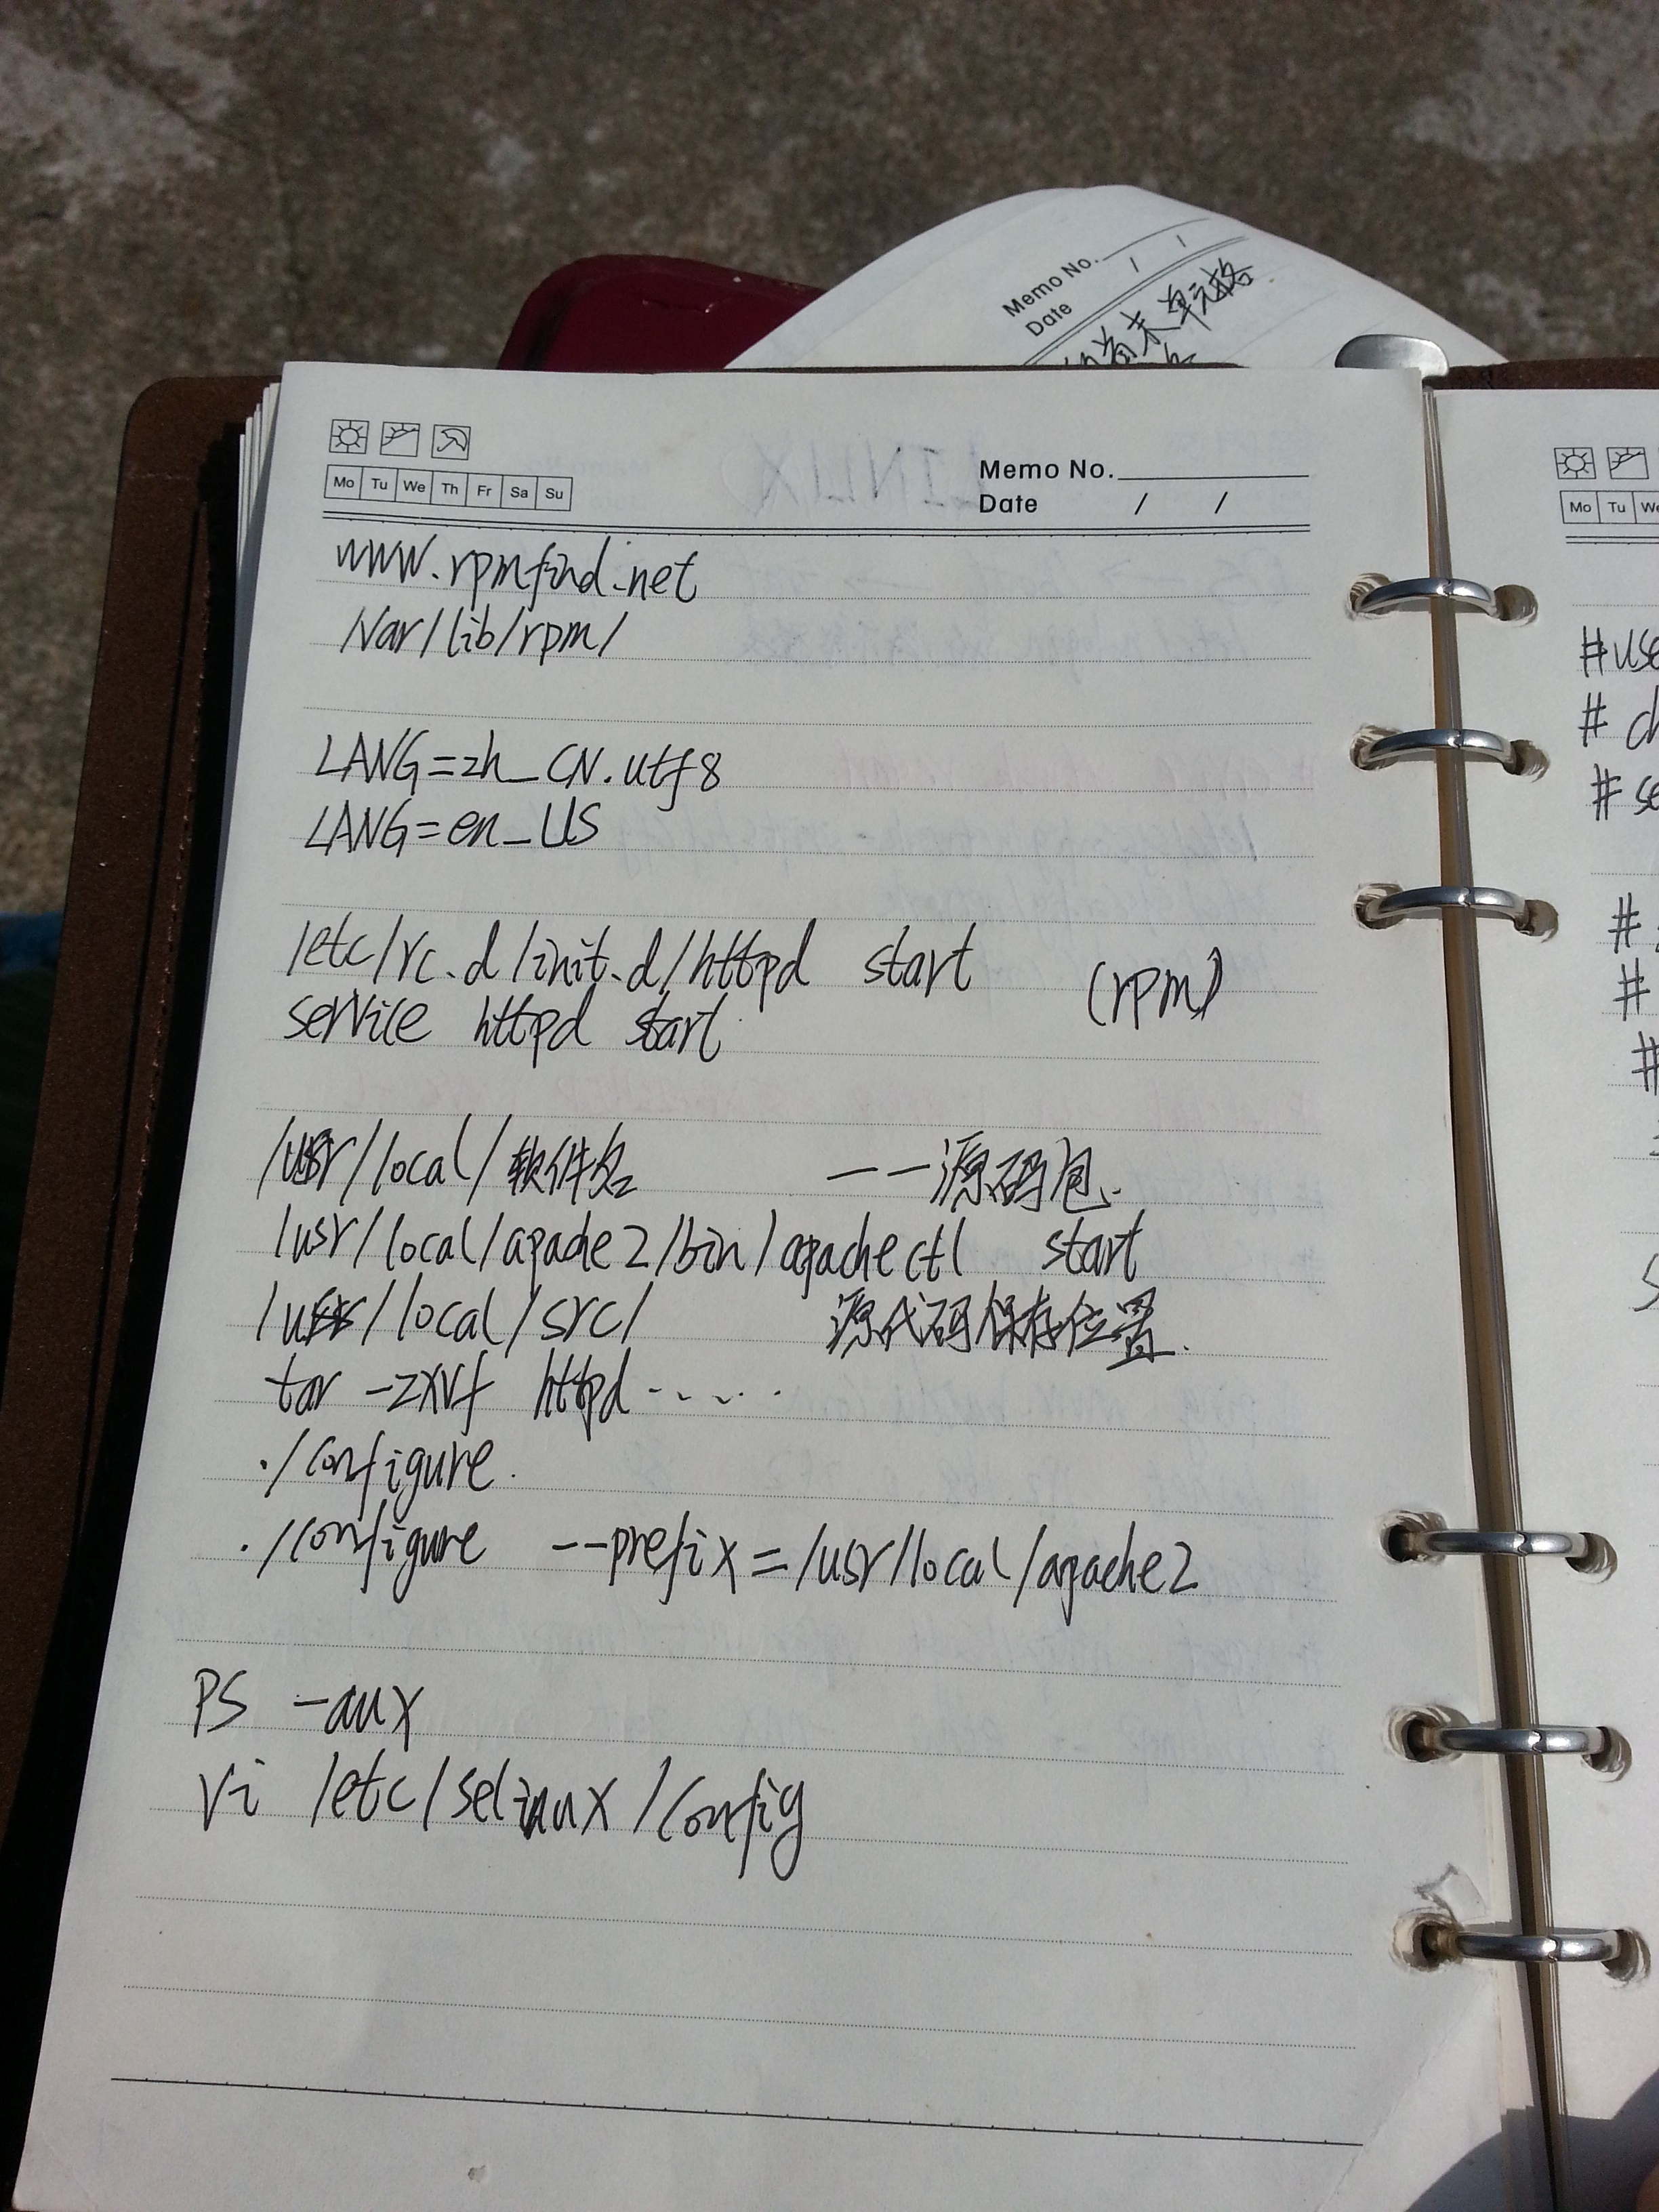 Memo No.
Date / /
Mo Tu We Th Fr Sa Su
Memo No.
Date / /
www.rpmfind.net
/var/lib/rpm/
LANG=zh_CN.utf8
LANG=en_US
/etc/rc.d/init.d/httpd start (rpm)
service httpd start
/usr/local/软件名 ——源码包.
/usr/local/apache2/bin/apachectl start
/usr/local/src/ 源代码保存位置.
tar -zxvf httpd ......
./configure.
./configure --prefix=/usr/local/apache2
PS -aux
Vi /etc/selinux/config
Mo Tu
#
#
#
#
#
#